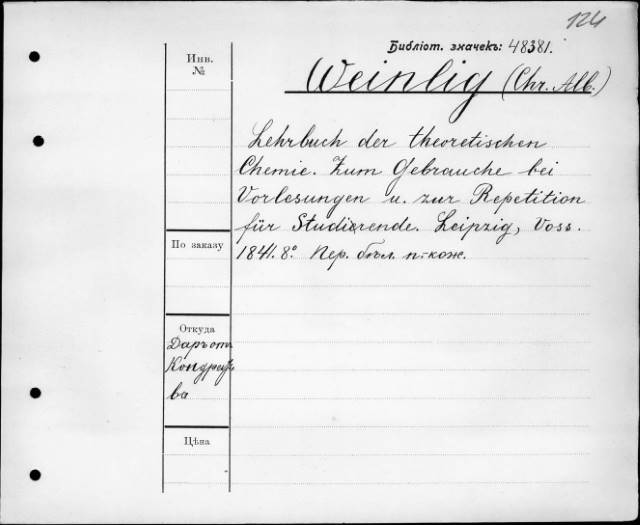 124
Библіот. значекъ: 48381.
Инв. №
Weinlig (Chr. Alb.)
Lehrbuch der theoretischen
Chemie. Zum Gebrauche bei
Vorlesungen u. zur Repetition
für Studierende. Leipzig, Voss.
1841. 8º Пер. бѣл. п.-кож.
По заказу
Откуда
Даръ отъ
Кондрать
ва
Цѣна